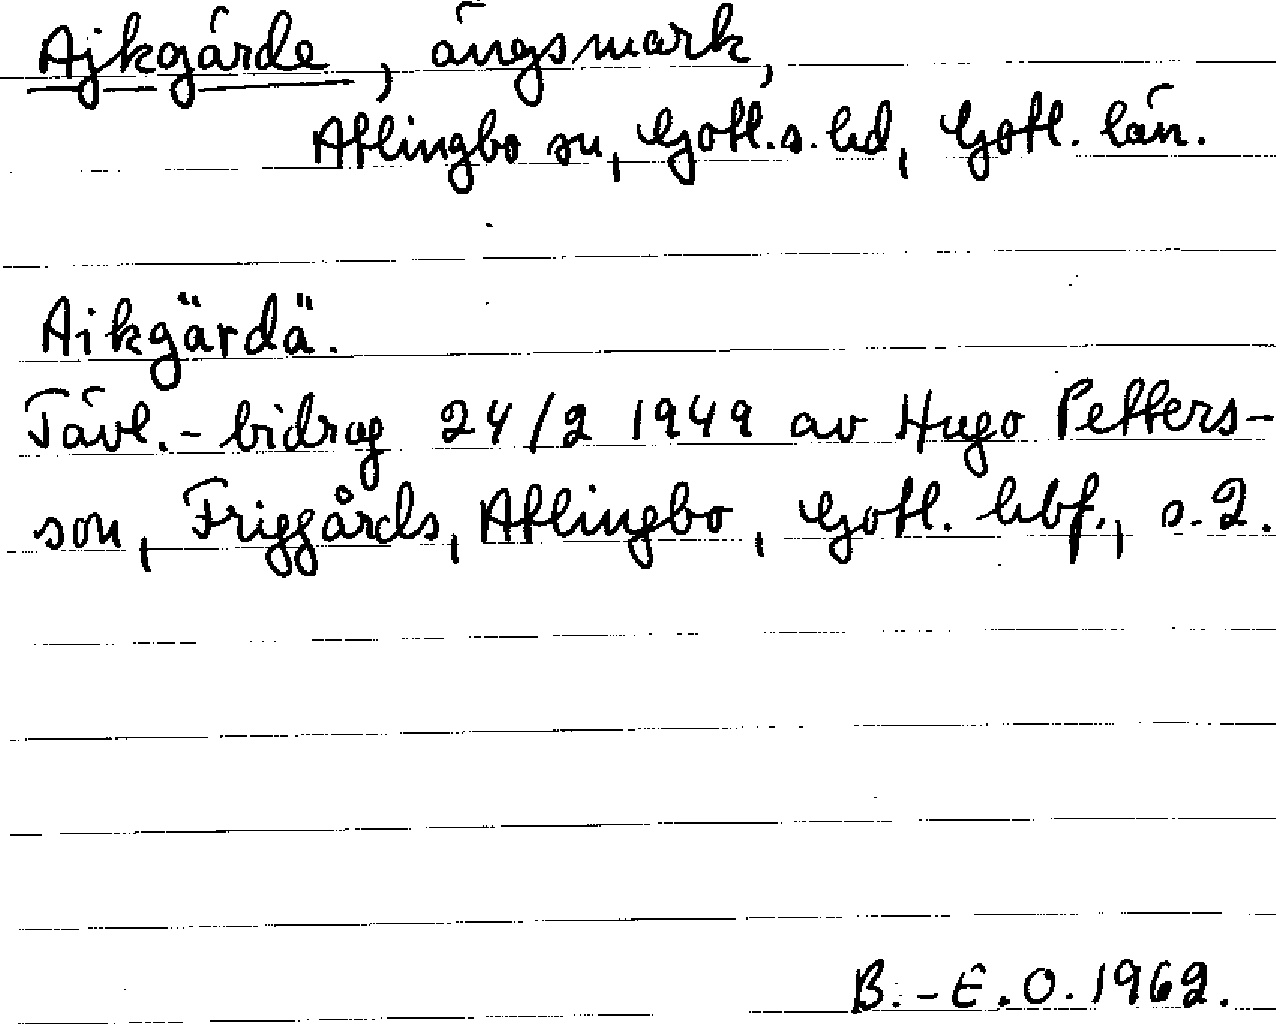 Ajkgärde, ängsmark,
Atlingbo sn, Gotl. s. hd, Gotl. län.
Aikgärdä.
Tävl.-bidrag 24/2 1949 av Hugo Petters-
son, Friggårds, Atlingbo, Gotl. hbf., s. 2.
B.-E.O. 1962.